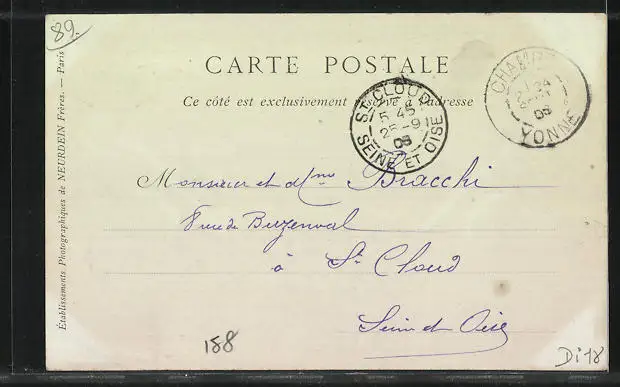 89.
CARTE POSTALE
Ce côté est exclusivement réservé à l'adresse
ST CLOUD
5 45
25 -9
03
SEINE ET OISE
CHAMP
24
03
YONNE
Monsieur et Mme Bracchi
8 rue de Buzenval
à St Cloud
Seine et Oise
188
Di 18
Établissements Photographiques de NEURDEIN Frères. — Paris